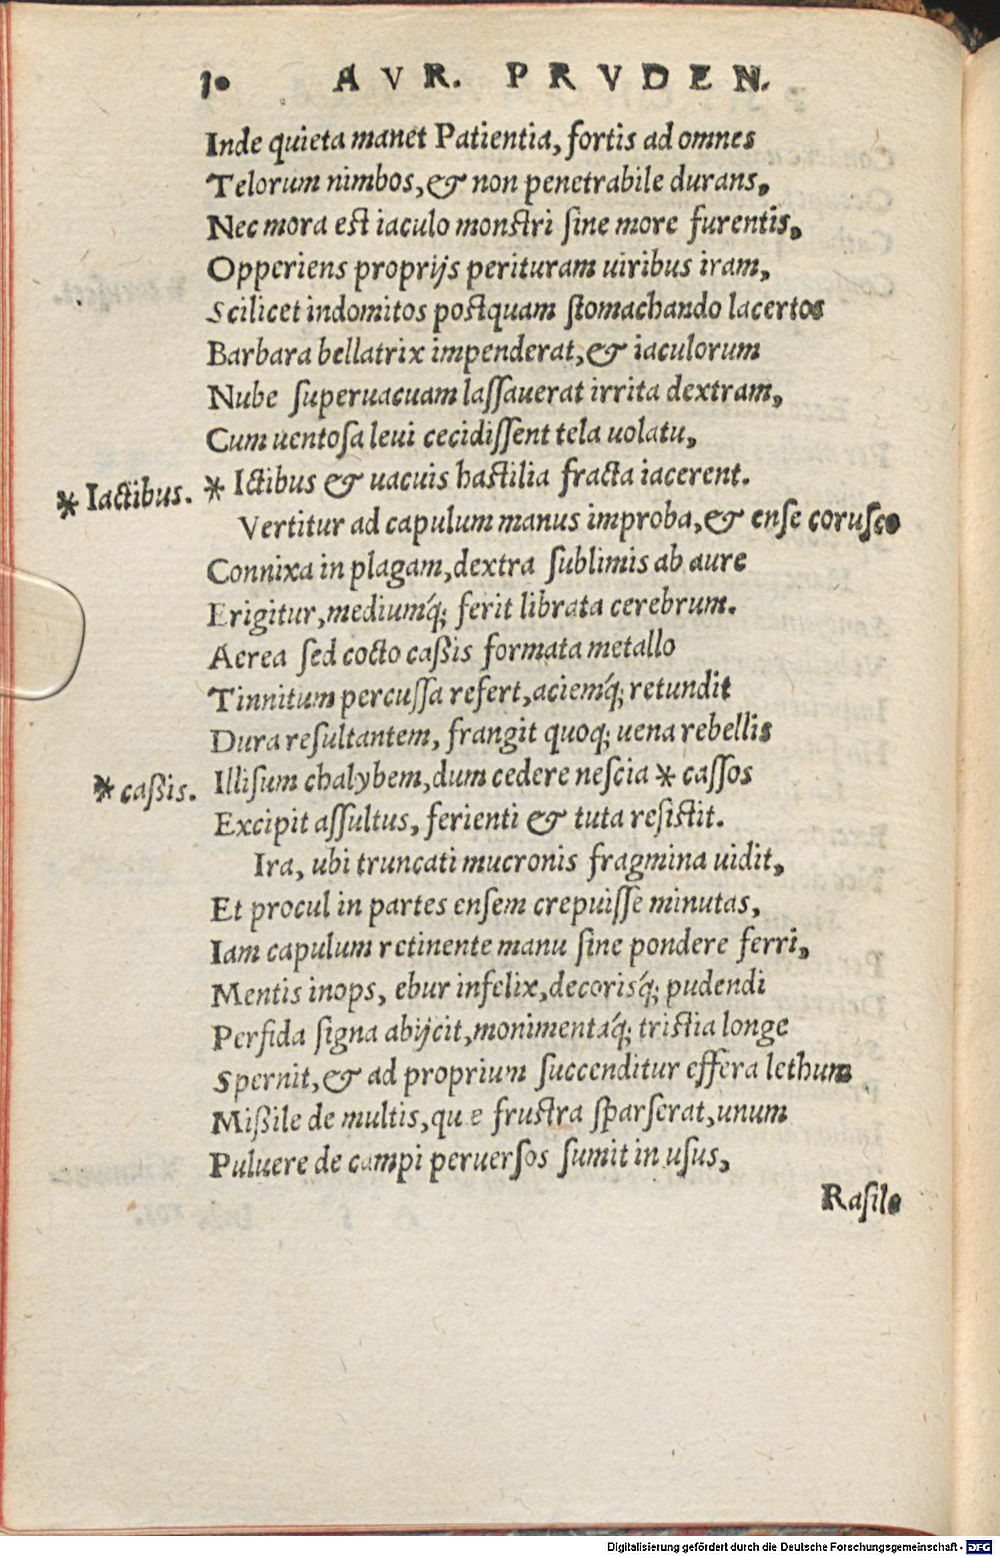 10 AVR. PRVDEN.
Inde quieta manet Patientia, fortis ad omnes
Telorum nimbos, & non penetrabile durans,
Nec mora est iaculo monstri ſine more furentis,
Opperiens proprijs perituram uiribus iram,
Scilicet indomitos postquam ſtomachando lacertos
Barbara bellatrix impenderat, & iaculorum
Nube ſuperuacuam laſſauerat irrita dextram,
Cum uentoſa leui cecidiſſent tela uolatu,
* Iactibus. * Ictibus & uacuis hastilia fracta iacerent.
Vertitur ad capulum manus improba, & enſe coruſco
Connixa in plagam, dextra ſublimis ab aure
Erigitur, mediumq́; ferit librata cerebrum.
Aerea ſed cocto caßis formata metallo
Tinnitum percuſſa refert, aciemq́; retundit
Dura reſultantem, frangit quoq; uena rebellis
* caßis. Illiſum chalybem, dum cedere neſcia * caſſos
Excipit aſſultus, ferienti & tuta reſistit.
Ira, ubi truncati mucronis fragmina uidit,
Et procul in partes enſem crepuiſſe minutas,
Iam capulum retinente manu ſine pondere ferri,
Mentis inops, ebur infelix, decorisq́; pudendi
Perfida ſigna abijcit, monimentaq́; tristia longe
Spernit, & ad proprium ſuccenditur effera lethum
Mißile de multis, quae frustra ſparſerat, unum
Puluere de campi peruerſos ſumit in uſus,
Raſile
Digitalisierung gefördert durch die Deutsche Forschungsgemeinschaft - DFG